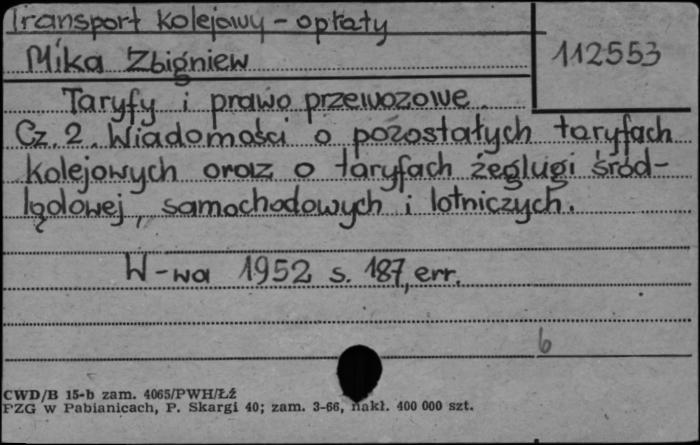 Transport kolejowy - opłaty
Mika Zbigniew
112553
Taryfy i prawo przewozowe.
Cz. 2. Wiadomości o pozostałych taryfach
kolejowych oraz o taryfach żeglugi śród-
lądowej, samochodowych i lotniczych.
W-wa 1952 s. 187, err.
6
CWD/B 15-b zam. 4065/PWH/ŁŹ
PZG w Pabianicach, P. Skargi 40; zam. 3-66, nakł. 400 000 szt.